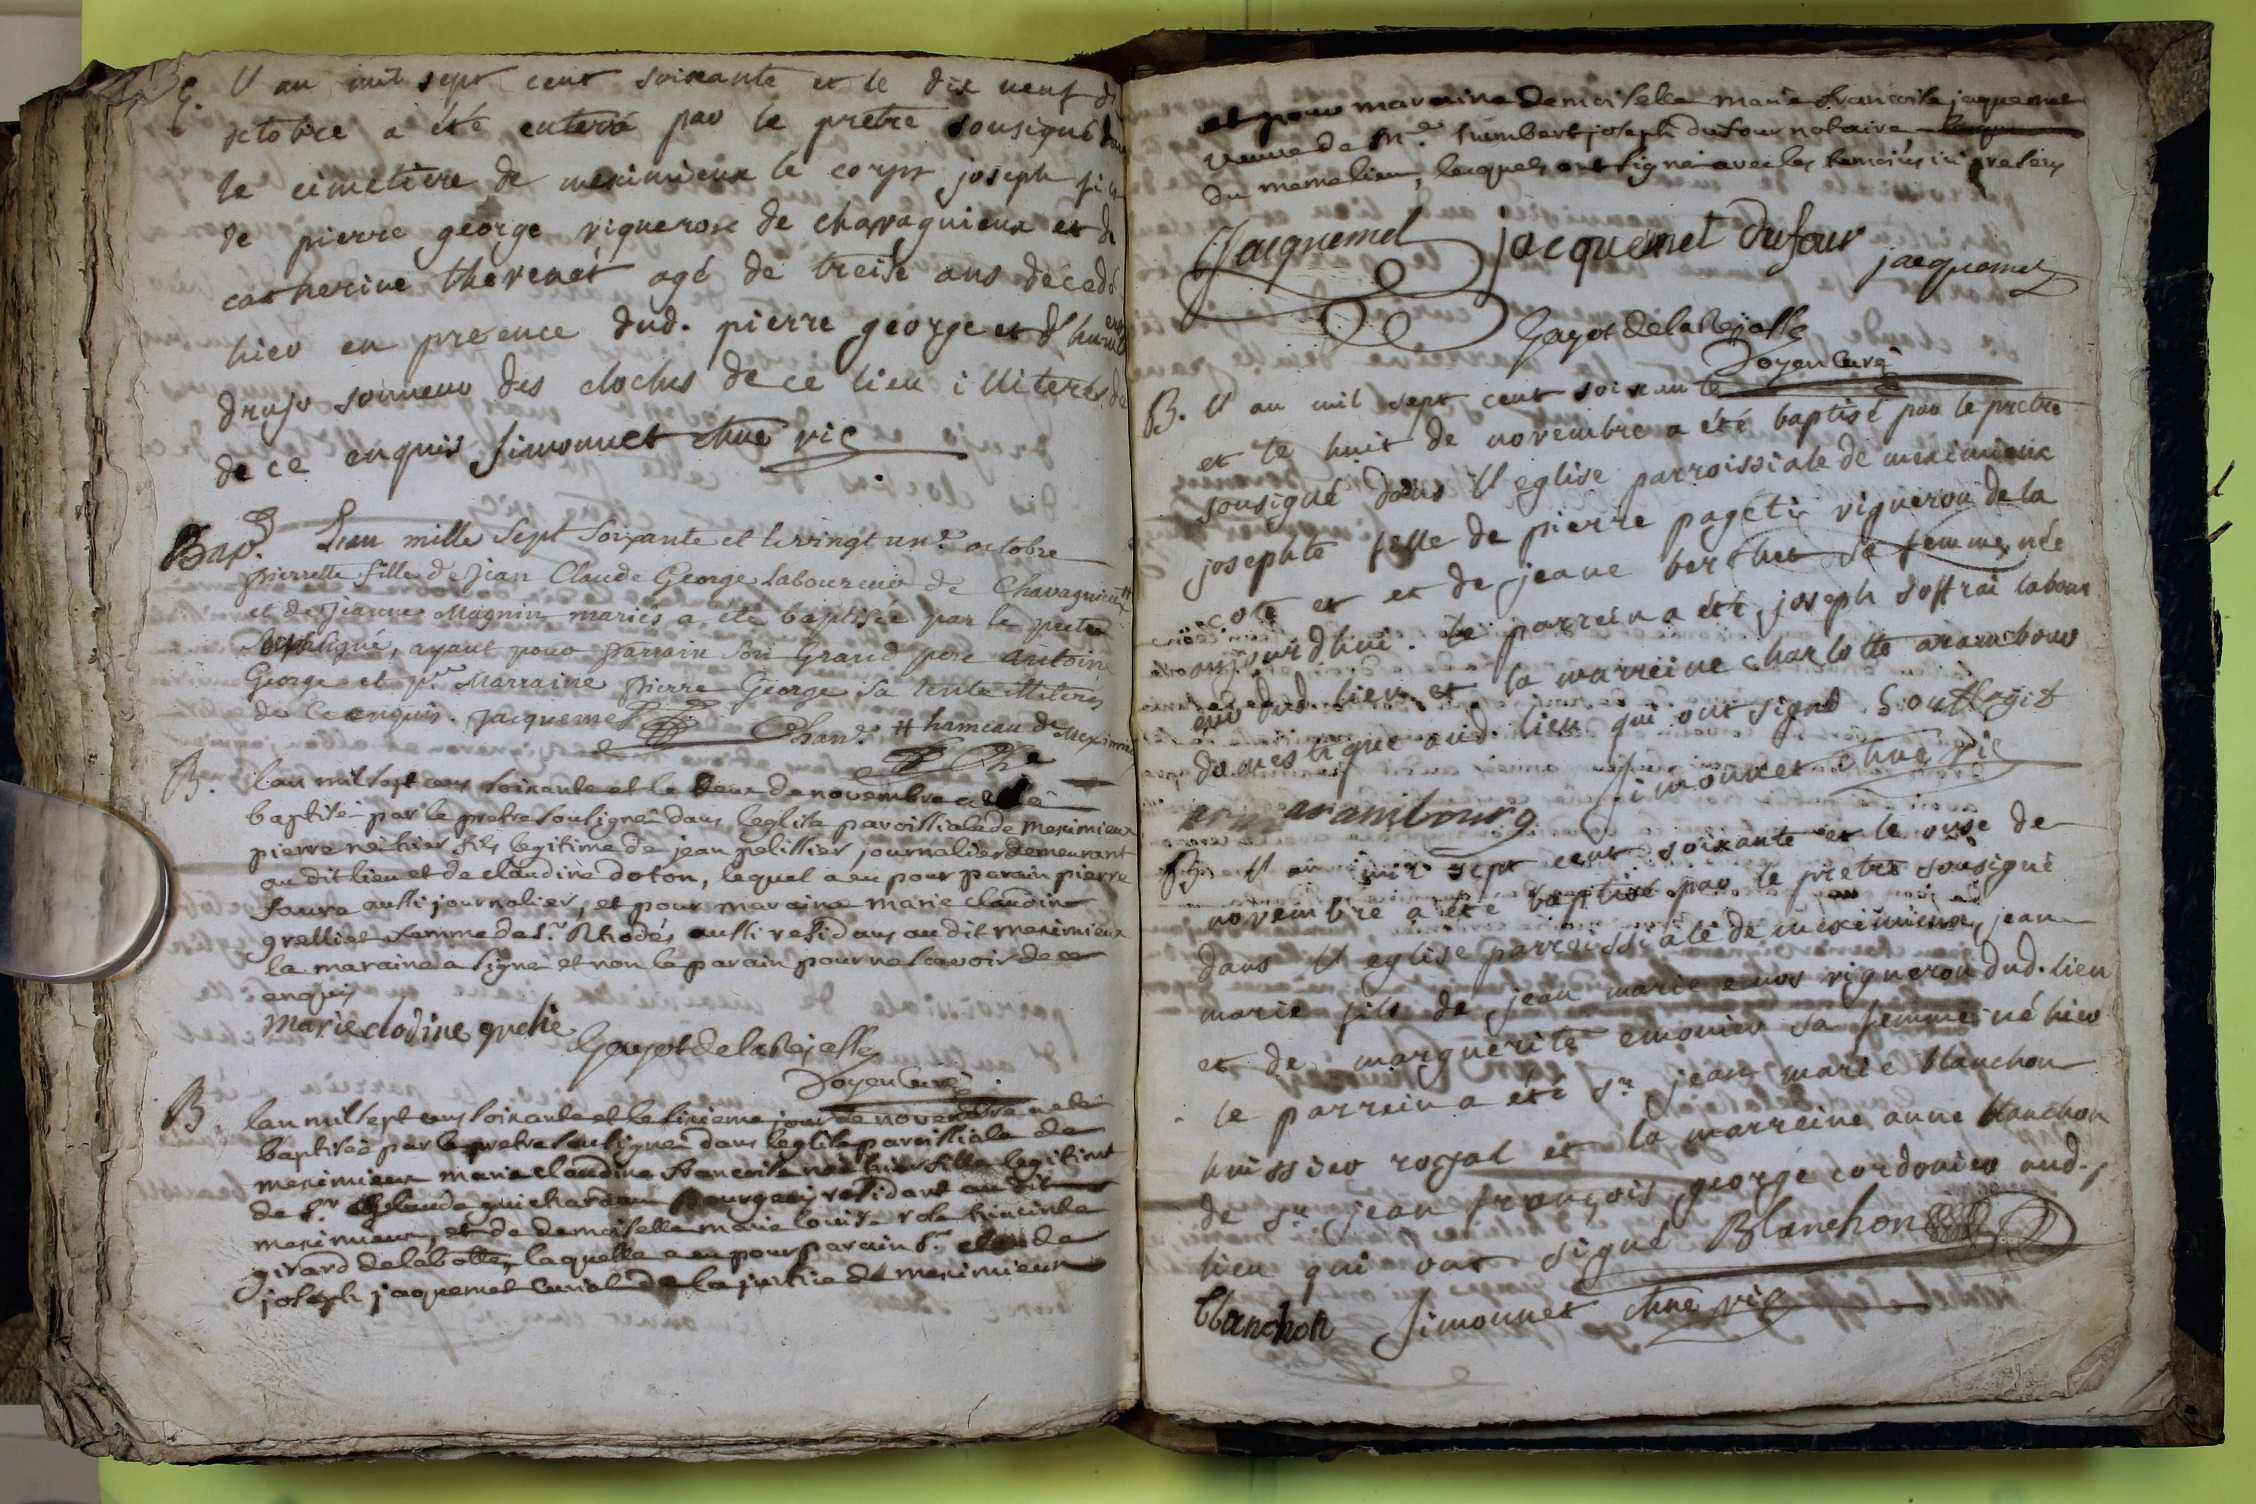 E. l'an mil sept cent soixante et le dix neuf d
octobre a été enterré par le pretre sousigné dans
le cimetiere de meximieux le corps joseph fils
de pierre george vigneron de chavagnieux et de
catherine thevenet agé de treise ans decedé
hier en presence dud. pierre george et d'
sonneur des cloches de ce lieu illiterés de
de ce enquis Simonnet chne vic
Bap. L'an mille Sept Soixante et le vingt un.e octobre
pierrette fille de Jean Claude George Laboureur de Chavagnieux #
et de Jeanne Magnin mariés a eté baptisée par le pretre
Soussigné, ayant pour parrain Son Grand pere antoine
George et pr. Marraine pierre George Sa tente illiterés
de ce enquis. Jacquemet Chan.e # hameau de Meximieux
B. lan mil sept cens soixante et le deux de novembre a eté
baptisé par le pretre soussigné dans leglise paroissiale de meximieux
pierre né hier fils legitime de jean pelissier journalier demeurant
au dit lieu et de claudine doton, lequel a eu pour parain pierre
faure aussi journalier, et pour maraine marie claudine
grelliet femme de Sr. Rhodés aussi residans au dit meximieux
la maraine a signé et non le parain pour ne scavoir de ce
enquis
marie clodine grelie
Gayot de la Rejasse
Doyen Curé
B. lan mil sept cens soixante et le sixieme jour de novembre a eté
baptisée par le pretre soussigné dans leglise paroissiale de
meximieux marie claudine francoise née hier fille legitime
de Sr. claude guichardon bourgeois residant au dit
meximieux, et de demoiselle marie louise rose hiacinte
girard delabotte, laquelle a eu pour parain Sr. claude
joseph jaquemet curial de la justice de meximieux
et pour maraine demoiselle marie francoise jaquemet
veuve de Me. humbert joseph dufour notaire
du meme lieu, lesquels ont signé avec les temoins ici presens
Jacquemet jacquemet Dufour
jacquemet
Gayot de la Rejasse
Doyen Curé
B. l'an mil sept cent soixante
et le huit de novembre a été baptisé par le pretre
sousigné dans l'eglise parroissiale de meximieux
josephte fille de pierre pagetis vigneron de la
cote et et de jeane berthet sa femme, née
aujourdhui. le parrein a été joseph soffrai labour
eur dud. lieu et la marreine charlotte arambour
domestique aud. lieu qui ont signé
Simonnet chne vic
arambourg
B. l'an mil sept cent soixante et le onze de
novembre a été baptisé par le pretre sousigné
dans l'eglise parroissiale de meximieux, jean
marie fils de jean marie enos vigneron dud. lieu
et de marguerite emonier sa femme né hier
le parrein a été Sr jean marie blanchon
huissier royal et la marreine anne blanchon
de Sr. jean françois george cordonier aud.
lieu qui ont signé Blanchon
blanchon Simonnet chne vic